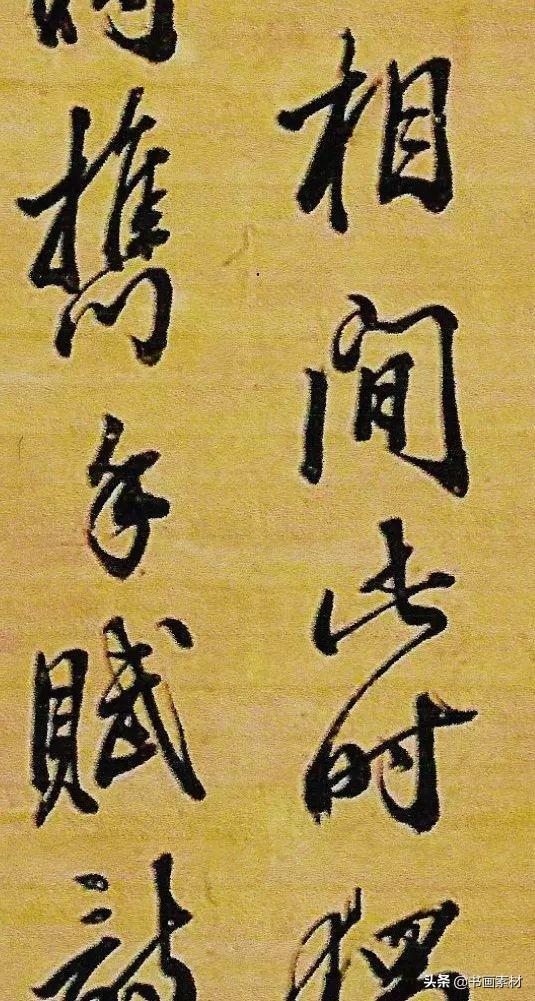 相間此時獨
攜手賦詩
头条 @书画素材